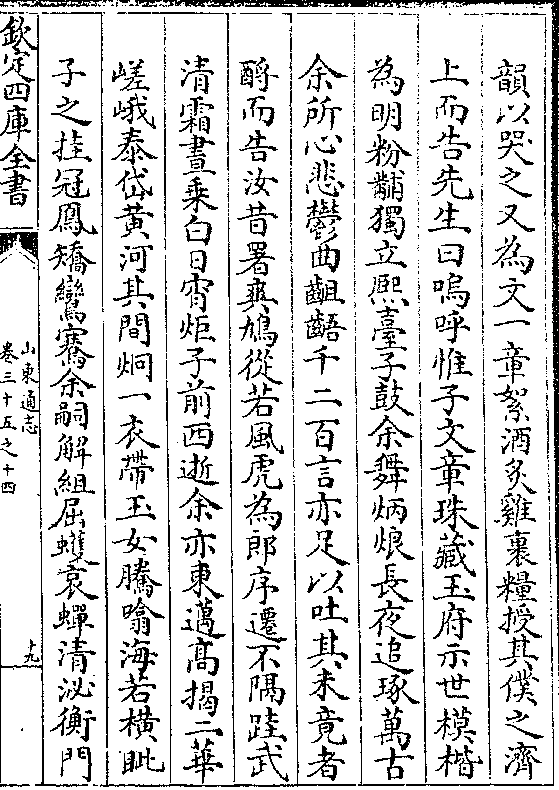 韻以哭之又為文一章絮酒炙雞裹糧授其僕之濟
上而告先生曰嗚呼惟子文章珠藏玉府示世模楷
為明粉黼獨立熙臺子鼓余舞炳烺長夜追琢萬古
余所心悲鬱曲齟齬千二百言亦足以吐其未竟者
酹而告汝昔署爽鳩從若風虎為郎序遷不隔跬武
清霜晝乘白日宵炬子前西逝余亦東邁高揭二華
嵯峨泰岱黃河其間炯一衣帶玉女騰噏海若橫眦
子之挂冠鳳矯鸞騫余嗣解組屈蠖哀蟬清泌衡門
欽定四庫全書
山東通志
卷三十五之十四
十九